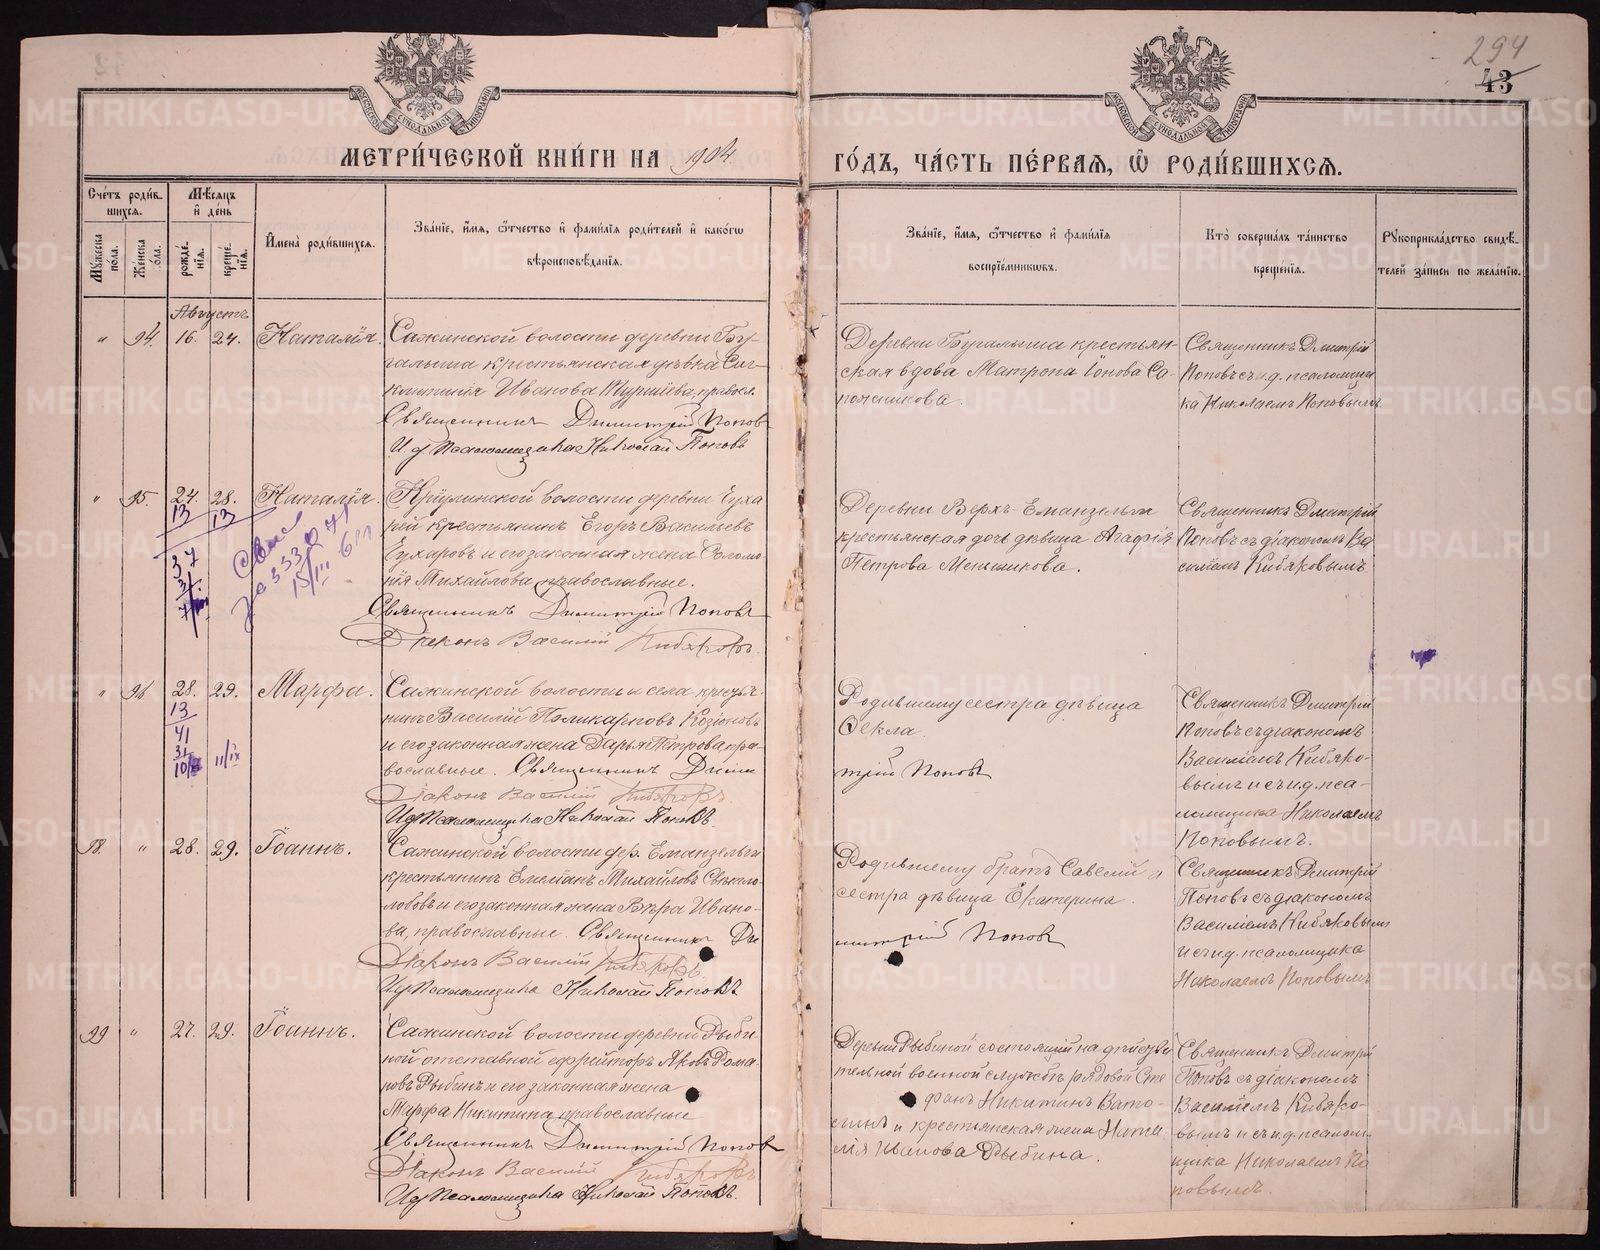 294
43
МЕТРИ́ЧЕСКОЙ КНИ́ГИ НА 1904
ГО́ДЪ, ЧА́СТЬ ПЕ́РВАЯ, Ѡ РОДИ́ВШИХСЯ.
Сче́тъ роди́в-
шихся.
Му́жеска по́ла.
Же́нска по́ла.
Мѣ́сяцъ
и де́нь
рожде́-
нія.
креще́-
нія.
Имена̀ роди́вшихся.
Зва́ніе, и́мя, ѻ҆́тчество и фами́лія роди́телей и како́гѡ
вѣроисповѣ́данія.
Зва́ніе, и́мя, ѻ҆́тчество и фами́лія
воспріе́мниковъ.
Кто̀ соверша́лъ та́инство
креще́нія.
Рукоприкла́дство свидѣ́-
телей за́писи по жела́нію.
Августъ
" 94. 16. 24. Наталія.
Сажинской волости деревни Бу-
галыша крестьянская дѣвка Син-
клитикія Иванова правосл.
Священникъ Димитрій Поповъ
И. д. Псаломщика Николай Поповъ
Деревни Бугалыша крестьян-
ская вдова Матрона Іонова Са-
пожникова.
Священникъ Дмитрій
Поповъ съ и. д. псаломщи-
ка Николаемъ Поповымъ
" 95. 24. 28. Наталія
13 13
37
31
Свид
за 333
15/III
Крүлинской волости деревни Еуха
рей крестьянинъ Егоръ Васильевъ
Еухаровъ и его законная жена Соломо-
нія Михайлова православные.
Священникъ Димитрій Поповъ
Діаконъ Василій Кибяковъ.
Деревни Верхъ-Еманзельги
крестьянская дочь дѣвица Агафія
Петрова Меньшикова.
Священникъ Дмитрій
Поповъ съ діакономъ Ва-
силіемъ Кибяковымъ
" 96 28. 29. Марфа.
13
41
31
11/IX
Сажинской волости и села крестья-
нинъ Василій Поликарповъ Козіоновъ
и его законная жена Дарья Петрова пра-
вославные. Священникъ Дими
Діаконъ Василій Кибяковъ.
И д Псаломщика Николай Поповъ.
Родившему сестра дѣвица
Ѳекла.
трій Поповъ
Священникъ Дмитрій
Поповъ съ діакономъ
Василіемъ Кибяко-
вымъ и съ и.д. пса-
ломщика Николаемъ
Поповымъ.
98. " 28. 29. Іоаннъ.
Сажинской волости дер. Еманзельги
крестьянинъ Емеліанъ Михайловъ Свѣтло-
лобовъ и его законная жена Вѣра Ивано-
ва, православные. Священникъ Ди
Діаконъ Василій Кибяковъ.
И д Псаломщика Николай Поповъ
Родившему братъ Савелій и
сестра дѣвица Екатерина.
митрій Поповъ
Священникъ Дмитрій
Поповъ съ діакономъ
Василіемъ Кибяковымъ
и съ и.д. псаломщика
Николаемъ Поповымъ
99 " 27. 29. Іоаннъ.
Сажинской волости деревни Рыби-
ной отставной ефрейторъ Яковъ Рома-
новъ Рыбинъ и его законная жена
Марфа Никитина православные
Священникъ Димитрій Поповъ
Діаконъ Василій Кибяковъ
И д Псаломщика Николай Поповъ.
Деревни Рыбиной состоящій на дѣйстви-
тельной военной службѣ рядовой Сте-
фанъ Никитинъ Вато-
линъ и крестьянская жена Ната-
лія Иванова Рыбина.
Священникъ Дмитрій
Поповъ съ діакономъ
Василіемъ Кибяко-
вымъ и съ и.д. псалом-
щика Николаемъ По-
повымъ.
METRIKI.GASO-URAL.RU